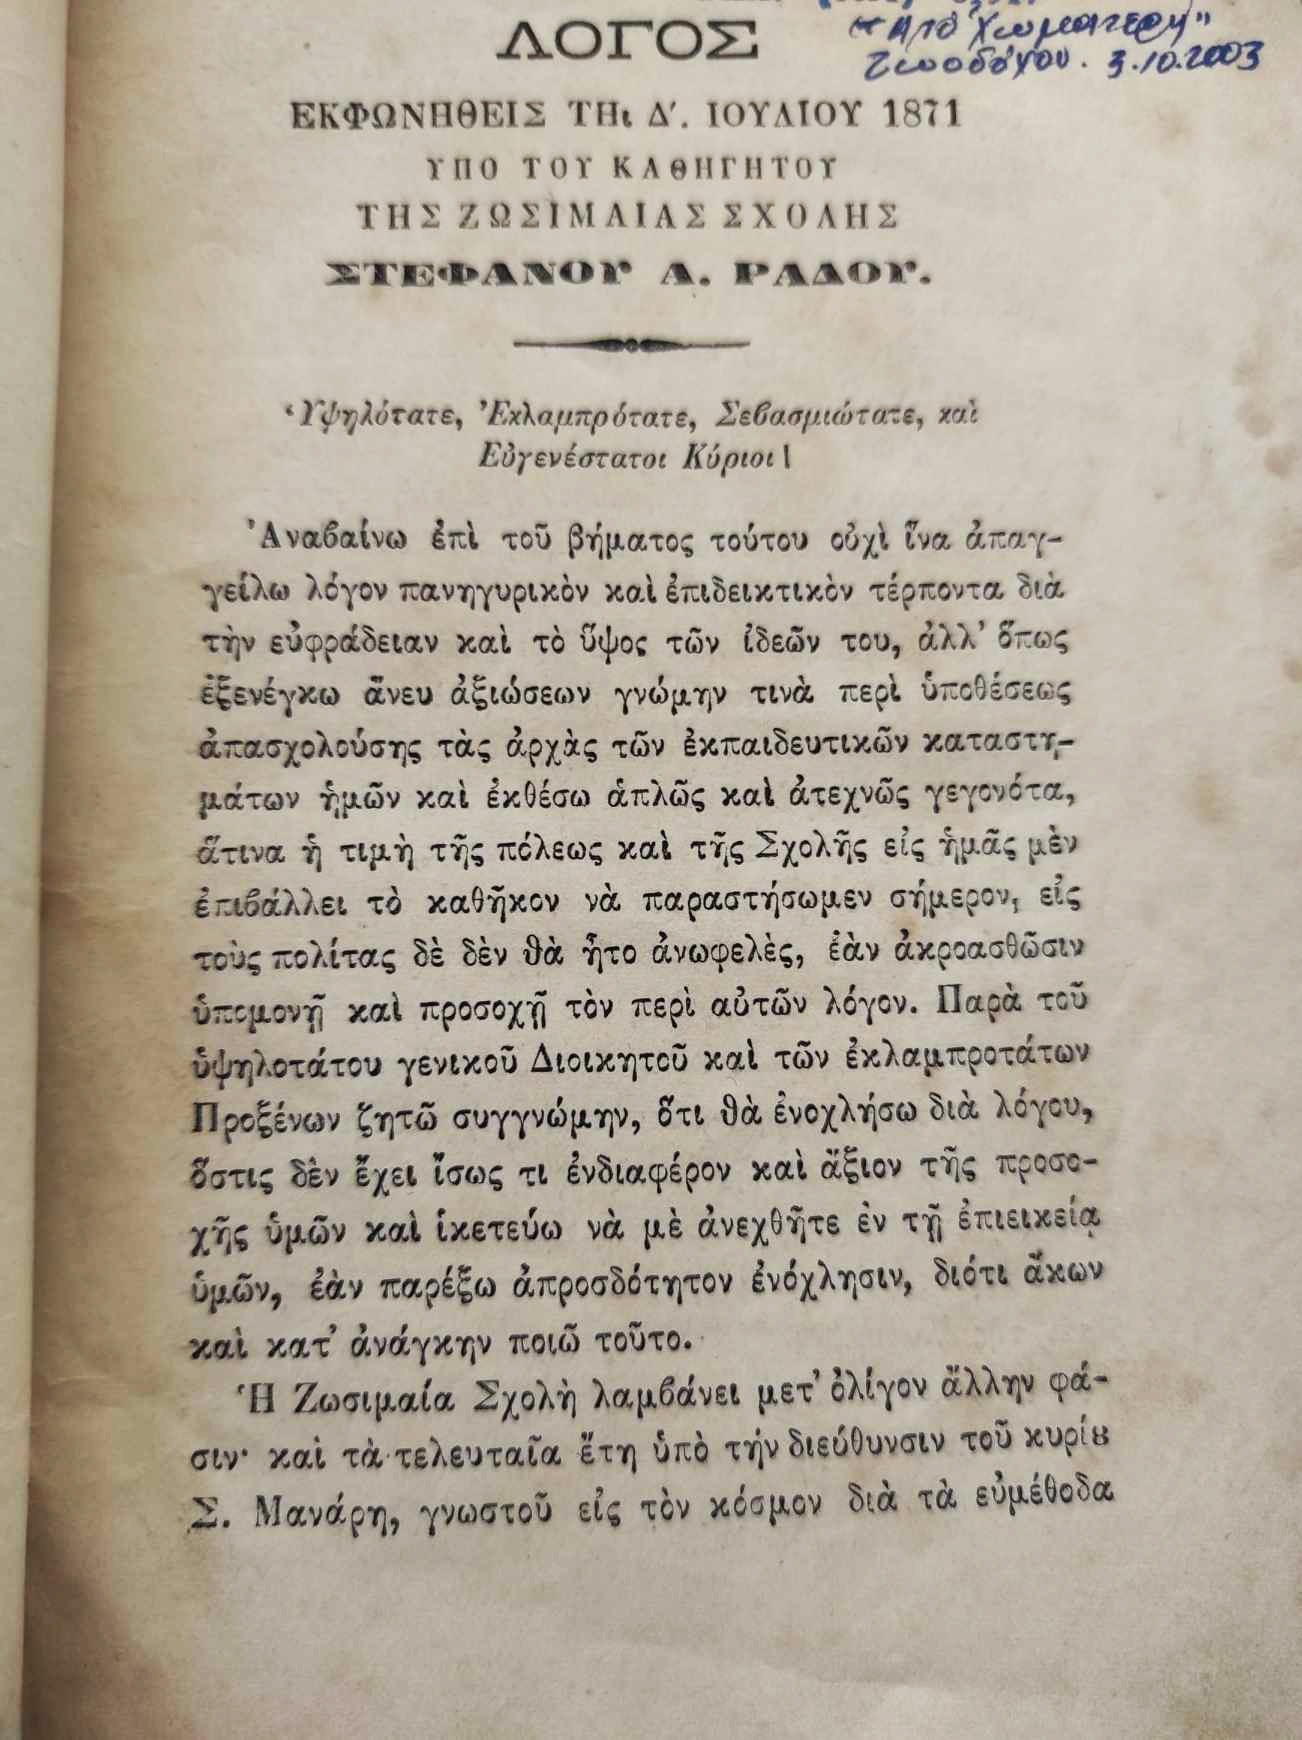 ΛΟΓΟΣ
3.10.2003
ΕΚΦΩΝΗΘΕΙΣ ΤΗι Δ΄. ΙΟΥΛΙΟΥ 1871
ΥΠΟ ΤΟΥ ΚΑΘΗΓΗΤΟΥ
ΤΗΣ ΖΩΣΙΜΑΙΑΣ ΣΧΟΛΗΣ
ΣΤΕΦΑΝΟΥ Α. ΡΑΔΟΥ.
Ὑψηλότατε, Ἐκλαμπρότατε, Σεβασμιώτατε, καὶ
Εὐγενέστατοι Κύριοι!
Ἀναβαίνω ἐπὶ τοῦ βήματος τούτου οὐχὶ ἵνα ἀπαγ-
γείλω λόγον πανηγυρικὸν καὶ ἐπιδεικτικὸν τέρποντα διὰ
τὴν εὐφράδειαν καὶ τὸ ὕψος τῶν ἰδεῶν του, ἀλλ’ ὅπως
ἐξενέγκω ἄνευ ἀξιώσεων γνώμην τινὰ περὶ ὑποθέσεως
ἀπασχολούσης τὰς ἀρχὰς τῶν ἐκπαιδευτικῶν καταστη-
μάτων ἡμῶν καὶ ἐκθέσω ἁπλῶς καὶ ἀτεχνῶς γεγονότα,
ἅτινα ἡ τιμὴ τῆς πόλεως καὶ τῆς Σχολῆς εἰς ἡμᾶς μὲν
ἐπιβάλλει τὸ καθῆκον νὰ παραστήσωμεν σήμερον, εἰς
τοὺς πολίτας δὲ δὲν θὰ ἦτο ἀνωφελὲς, ἐὰν ἀκροασθῶσιν
ὑπομονῇ καὶ προσοχῇ τὸν περὶ αὐτῶν λόγον. Παρὰ τοῦ
ὑψηλοτάτου γενικοῦ Διοικητοῦ καὶ τῶν ἐκλαμπροτάτων
Προξένων ζητῶ συγγνώμην, ὅτι θὰ ἐνοχλήσω διὰ λόγου,
ὅστις δὲν ἔχει ἴσως τι ἐνδιαφέρον καὶ ἄξιον τῆς προσο-
χῆς ὑμῶν καὶ ἱκετεύω νὰ μὲ ἀνεχθῆτε ἐν τῇ ἐπιεικείᾳ
ὑμῶν, ἐὰν παρέξω ἀπροσδότητον ἐνόχλησιν, διότι ἄκων
καὶ κατ’ ἀνάγκην ποιῶ τοῦτο.
Ἡ Ζωσιμαία Σχολὴ λαμβάνει μετ’ ὀλίγον ἄλλην φά-
σιν· καὶ τὰ τελευταῖα ἔτη ὑπὸ τήν διεύθυνσιν τοῦ κυρίȣ
Σ. Μανάρη, γνωστοῦ εἰς τὸν κόσμον διὰ τὰ εὐμέθοδα